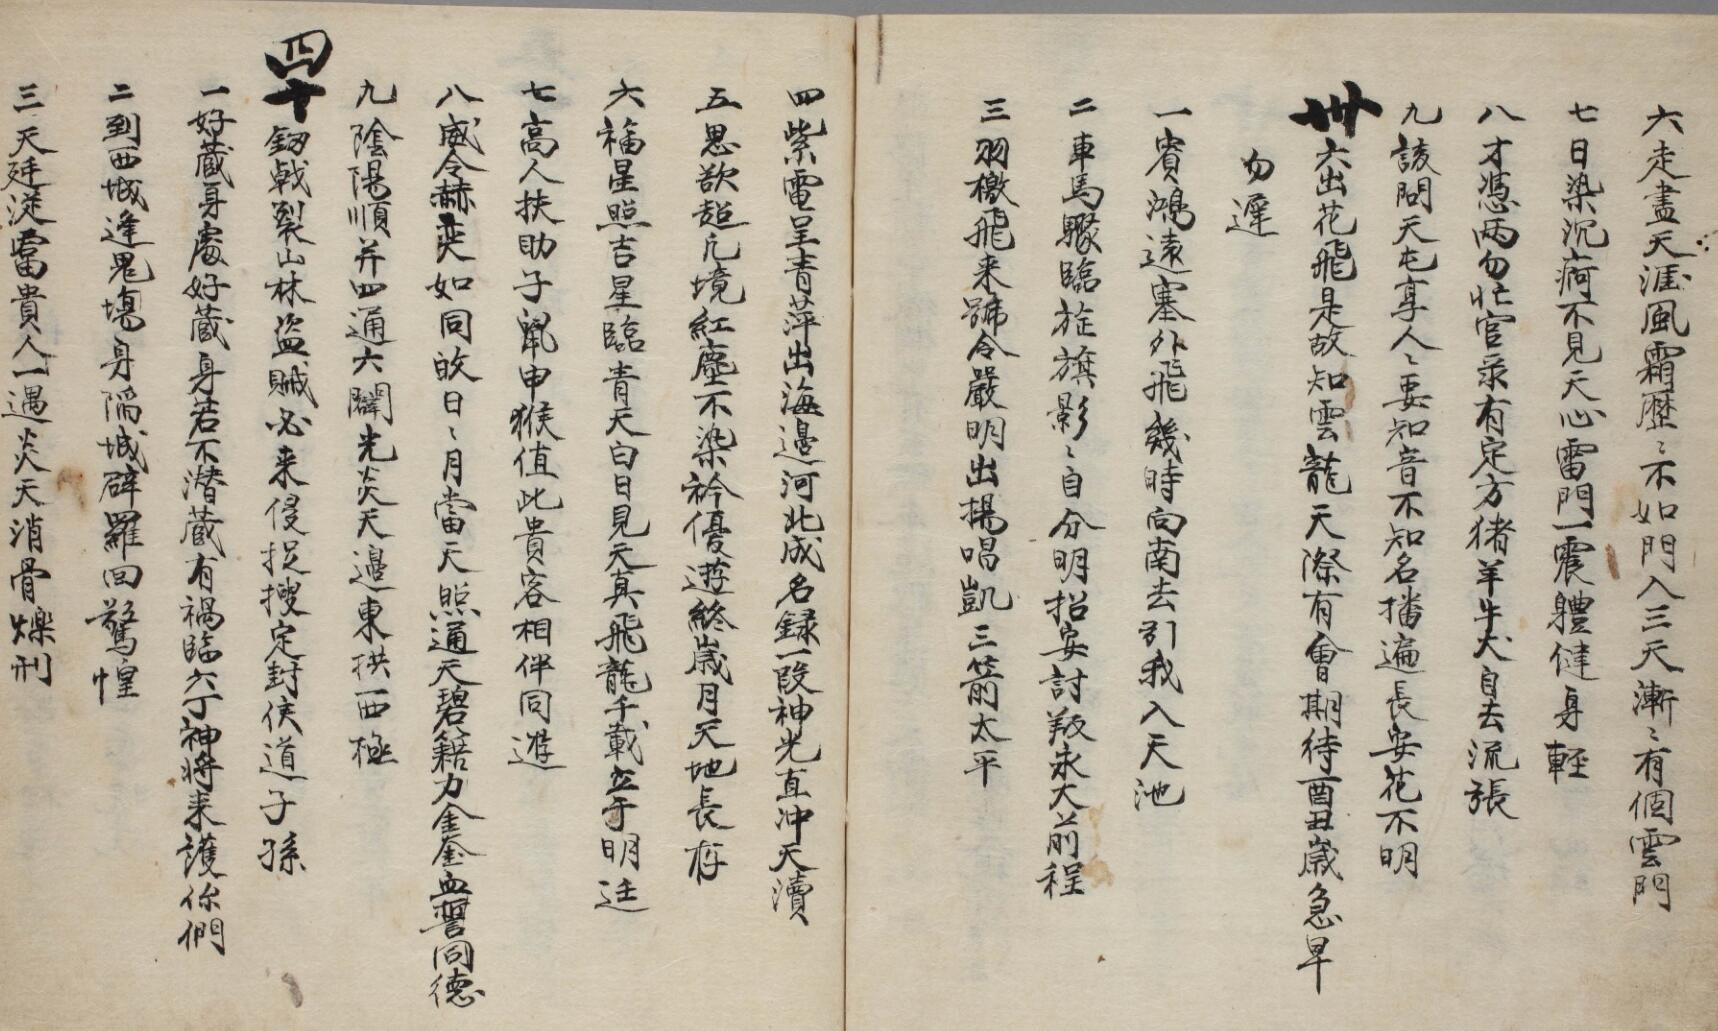 六走盡天涯風霜歷〻不如門入三天漸〻有個雲門
七日染沉疴不見天心雷門一震體健身輕
八才憑両勿忙官彔有定方猪羊牛犬自去流張
九該問天屯享人〻要知音不知名播遍長安花不明
卅六出花飛是故知雲龍天際有會期待酉丑歲急早
勿遲
一賓鴻遠塞外飛幾時向南去引我入天池
二車馬驟臨旌旗影〻自分明招安討叛永大前程
三羽檄飛来號令嚴明出揚唱凱三箭太平
四紫電呈青萍出海邊河北成名録一段神光直冲天瀆
五思欲超凢境紅塵不染衿優遊終歲月天地長存
六福星照吉星臨青天白日見天真飛龍千載立于明廷
七高人扶助子鼠申猴值此貴客相伴同遊
八威令赫奕如同的日〻月當天照通天碧籍力金釜血誓同德
九陰陽順并四通六闢光炎天邊東拱西極
四十釼戟裂山林盗賊必来侵捉搜定封侯道子孫
一好蔵身處好蔵身若不潜蔵有禍臨六丁神将来護你們
二到西城逢鬼塲身陷城辟羅回驚惶
三天廷従當貴人一遇炎天消骨爍刑